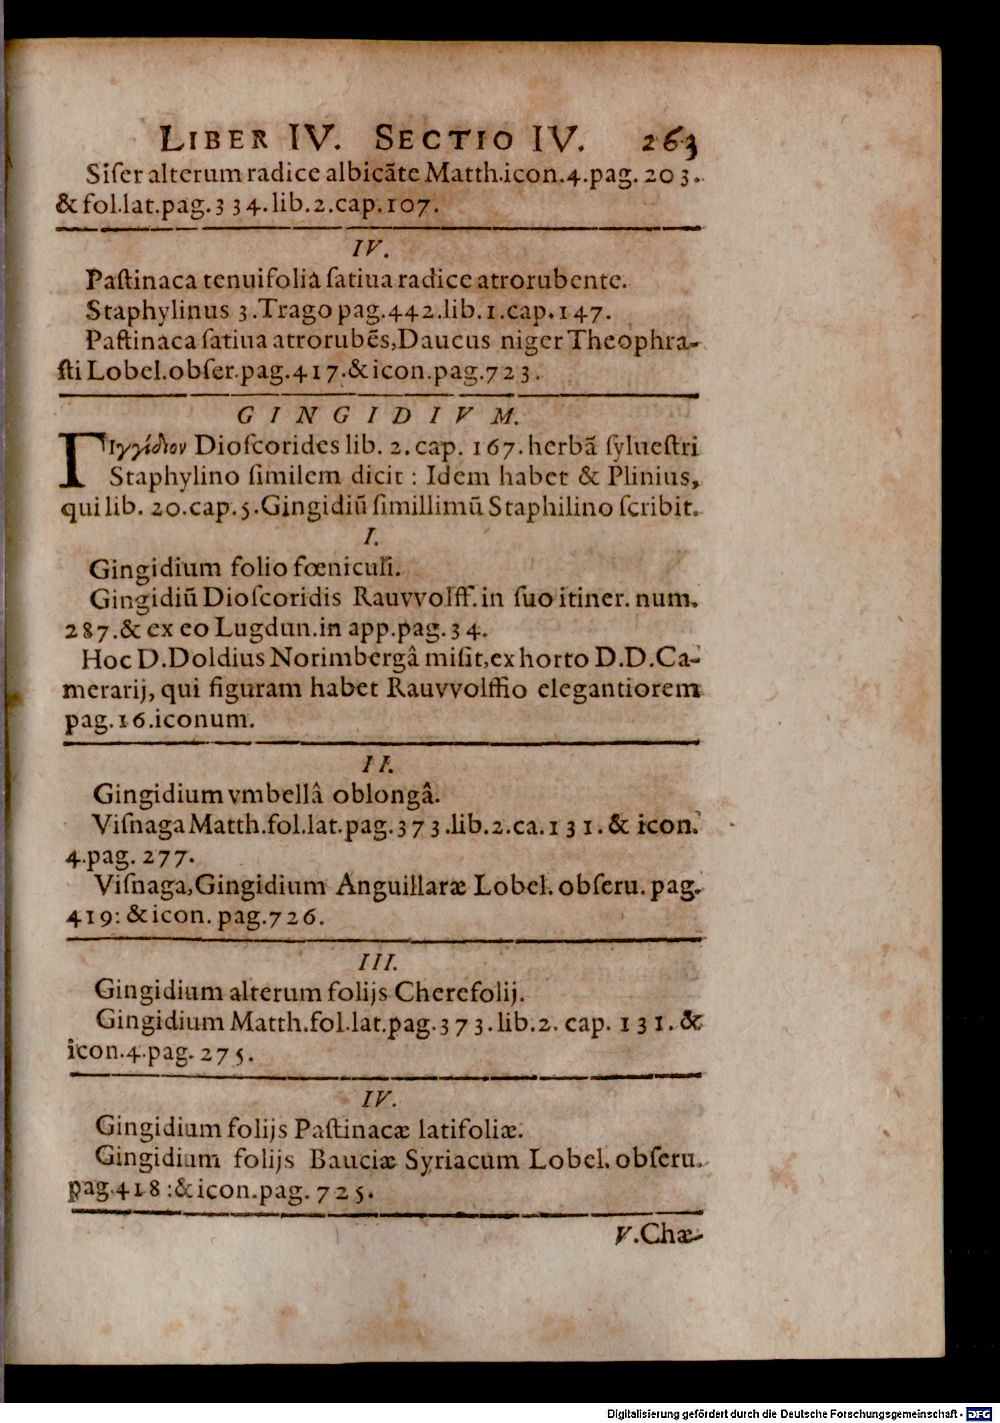 LIBER IV. SECTIO IV. 263
Siſer alterum radice albicāte Matth.icon.4.pag.203.
& fol.lat.pag.334.lib.2.cap.107.
IV.
Paſtinaca tenuifolia ſatiua radice atrorubente.
Staphylinus 3.Trago pag.442.lib.1.cap.147.
Paſtinaca ſatiua atrorubēs,Daucus niger Theophra-
ſti Lobel.obſer.pag.417.& icon.pag.723.
GINGIDIVM.
Γιγγίδιον Dioſcorides lib. 2. cap. 167. herbā ſylueſtri
Staphylino ſimilem dicit : Idem habet & Plinius,
qui lib. 20.cap.5.Gingidiū ſimillimū Staphilino ſcribit.
I.
Gingidium folio fœniculi.
Gingidiū Dioſcoridis Rauvvolff.in ſuo itiner. num.
287.& ex eo Lugdun.in app.pag.34.
Hoc D.Doldius Norimbergâ miſit,ex horto D.D.Ca-
merarij, qui figuram habet Rauvvolffio elegantiorem
pag.16.iconum.
II.
Gingidium vmbellâ oblongâ.
Viſnaga Matth.fol.lat.pag.373.lib.2.ca.131.& icon.
4.pag. 277.
Viſnaga,Gingidium Anguillaræ Lobel. obſeru. pag.
419: & icon. pag.726.
III.
Gingidium alterum folijs Cherefolij.
Gingidium Matth.fol.lat.pag.373.lib.2. cap. 131. &
icon.4.pag.275.
IV.
Gingidium folijs Paſtinacæ latifoliæ.
Gingidium folijs Bauciæ Syriacum Lobel. obſeru.
pag.418:& icon.pag. 725.
V.Chæ-
Digitalisierung gefördert durch die Deutsche Forschungsgemeinschaft - DFG